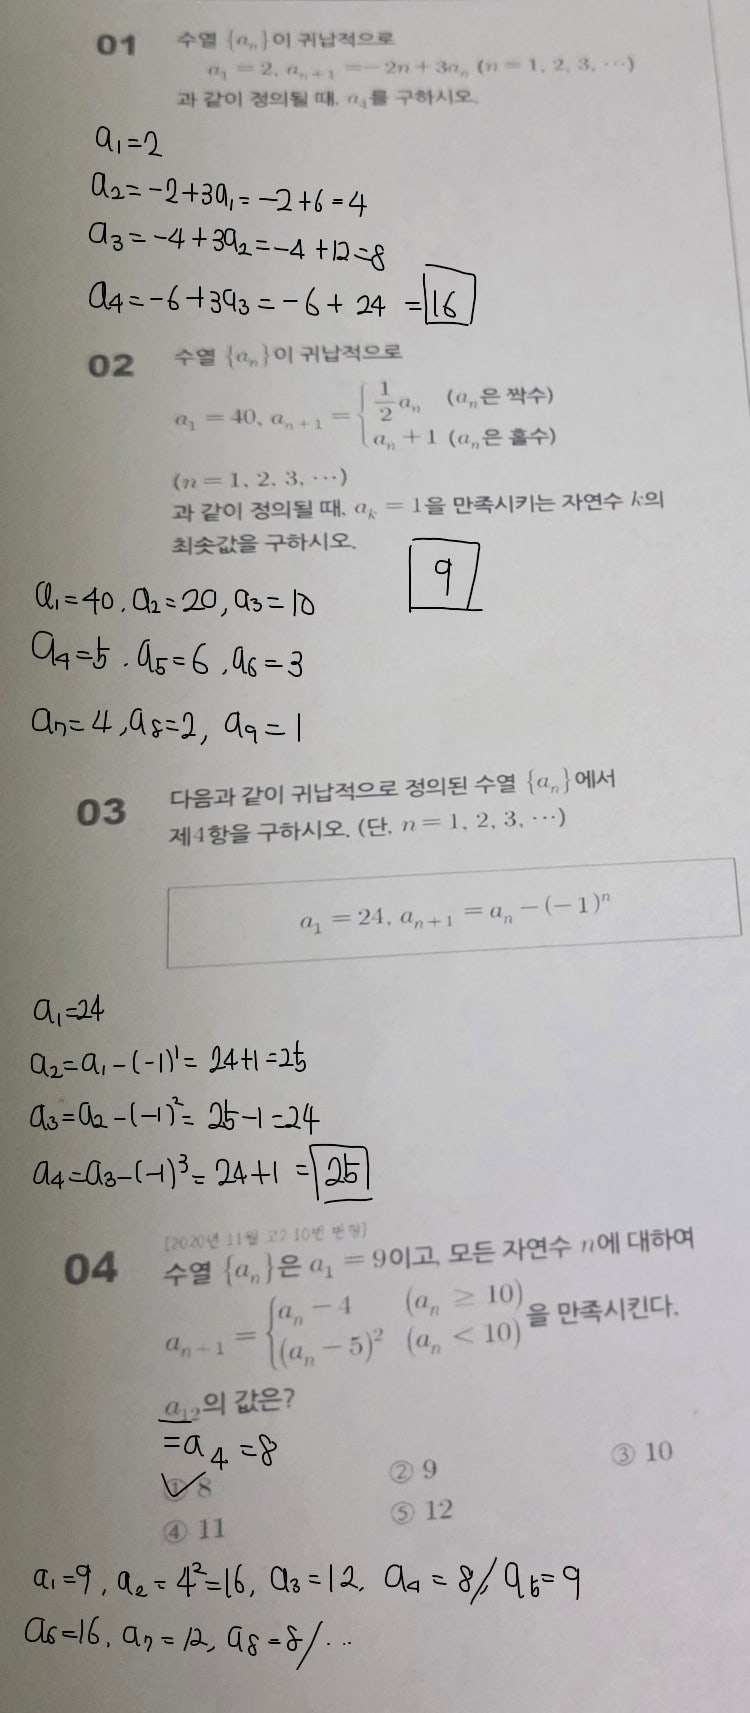 01 수열 {aₙ}이 귀납적으로
a₁ = 2, aₙ₊₁ = −2n + 3aₙ (n = 1, 2, 3, ⋯)
과 같이 정의될 때, a₄를 구하시오.
a₁=2
a₂=-2+3a₁=-2+6=4
a₃=-4+3a₂=-4+12=8
a₄=-6+3a₃=-6+24=16
02 수열 {aₙ}이 귀납적으로
a₁ = 40, aₙ₊₁ = { 1/2 aₙ (aₙ은 짝수)
aₙ + 1 (aₙ은 홀수)
(n = 1, 2, 3, ⋯)
과 같이 정의될 때, aₖ = 1을 만족시키는 자연수 k의
최솟값을 구하시오.
9
a₁=40, a₂=20, a₃=10
a₄=5, a₅=6, a₆=3
a₇=4, a₈=2, a₉=1
03 다음과 같이 귀납적으로 정의된 수열 {aₙ}에서
제4항을 구하시오. (단, n = 1, 2, 3, ⋯)
a₁ = 24, aₙ₊₁ = aₙ − (−1)ⁿ
a₁=24
a₂=a₁-(-1)¹=24+1=25
a₃=a₂-(-1)²=25-1=24
a₄=a₃-(-1)³=24+1=25
[2020년 11월 고2 10번 변형]
04 수열 {aₙ}은 a₁ = 9이고, 모든 자연수 n에 대하여
aₙ₊₁ = { aₙ − 4 (aₙ ≥ 10)
(aₙ − 5)² (aₙ < 10) 을 만족시킨다.
a₁₂의 값은?
=a₄=8
① 8 ② 9 ③ 10
④ 11 ⑤ 12
a₁=9, a₂=4²=16, a₃=12, a₄=8/, a₅=9
a₆=16, a₇=12, a₈=8/ ...